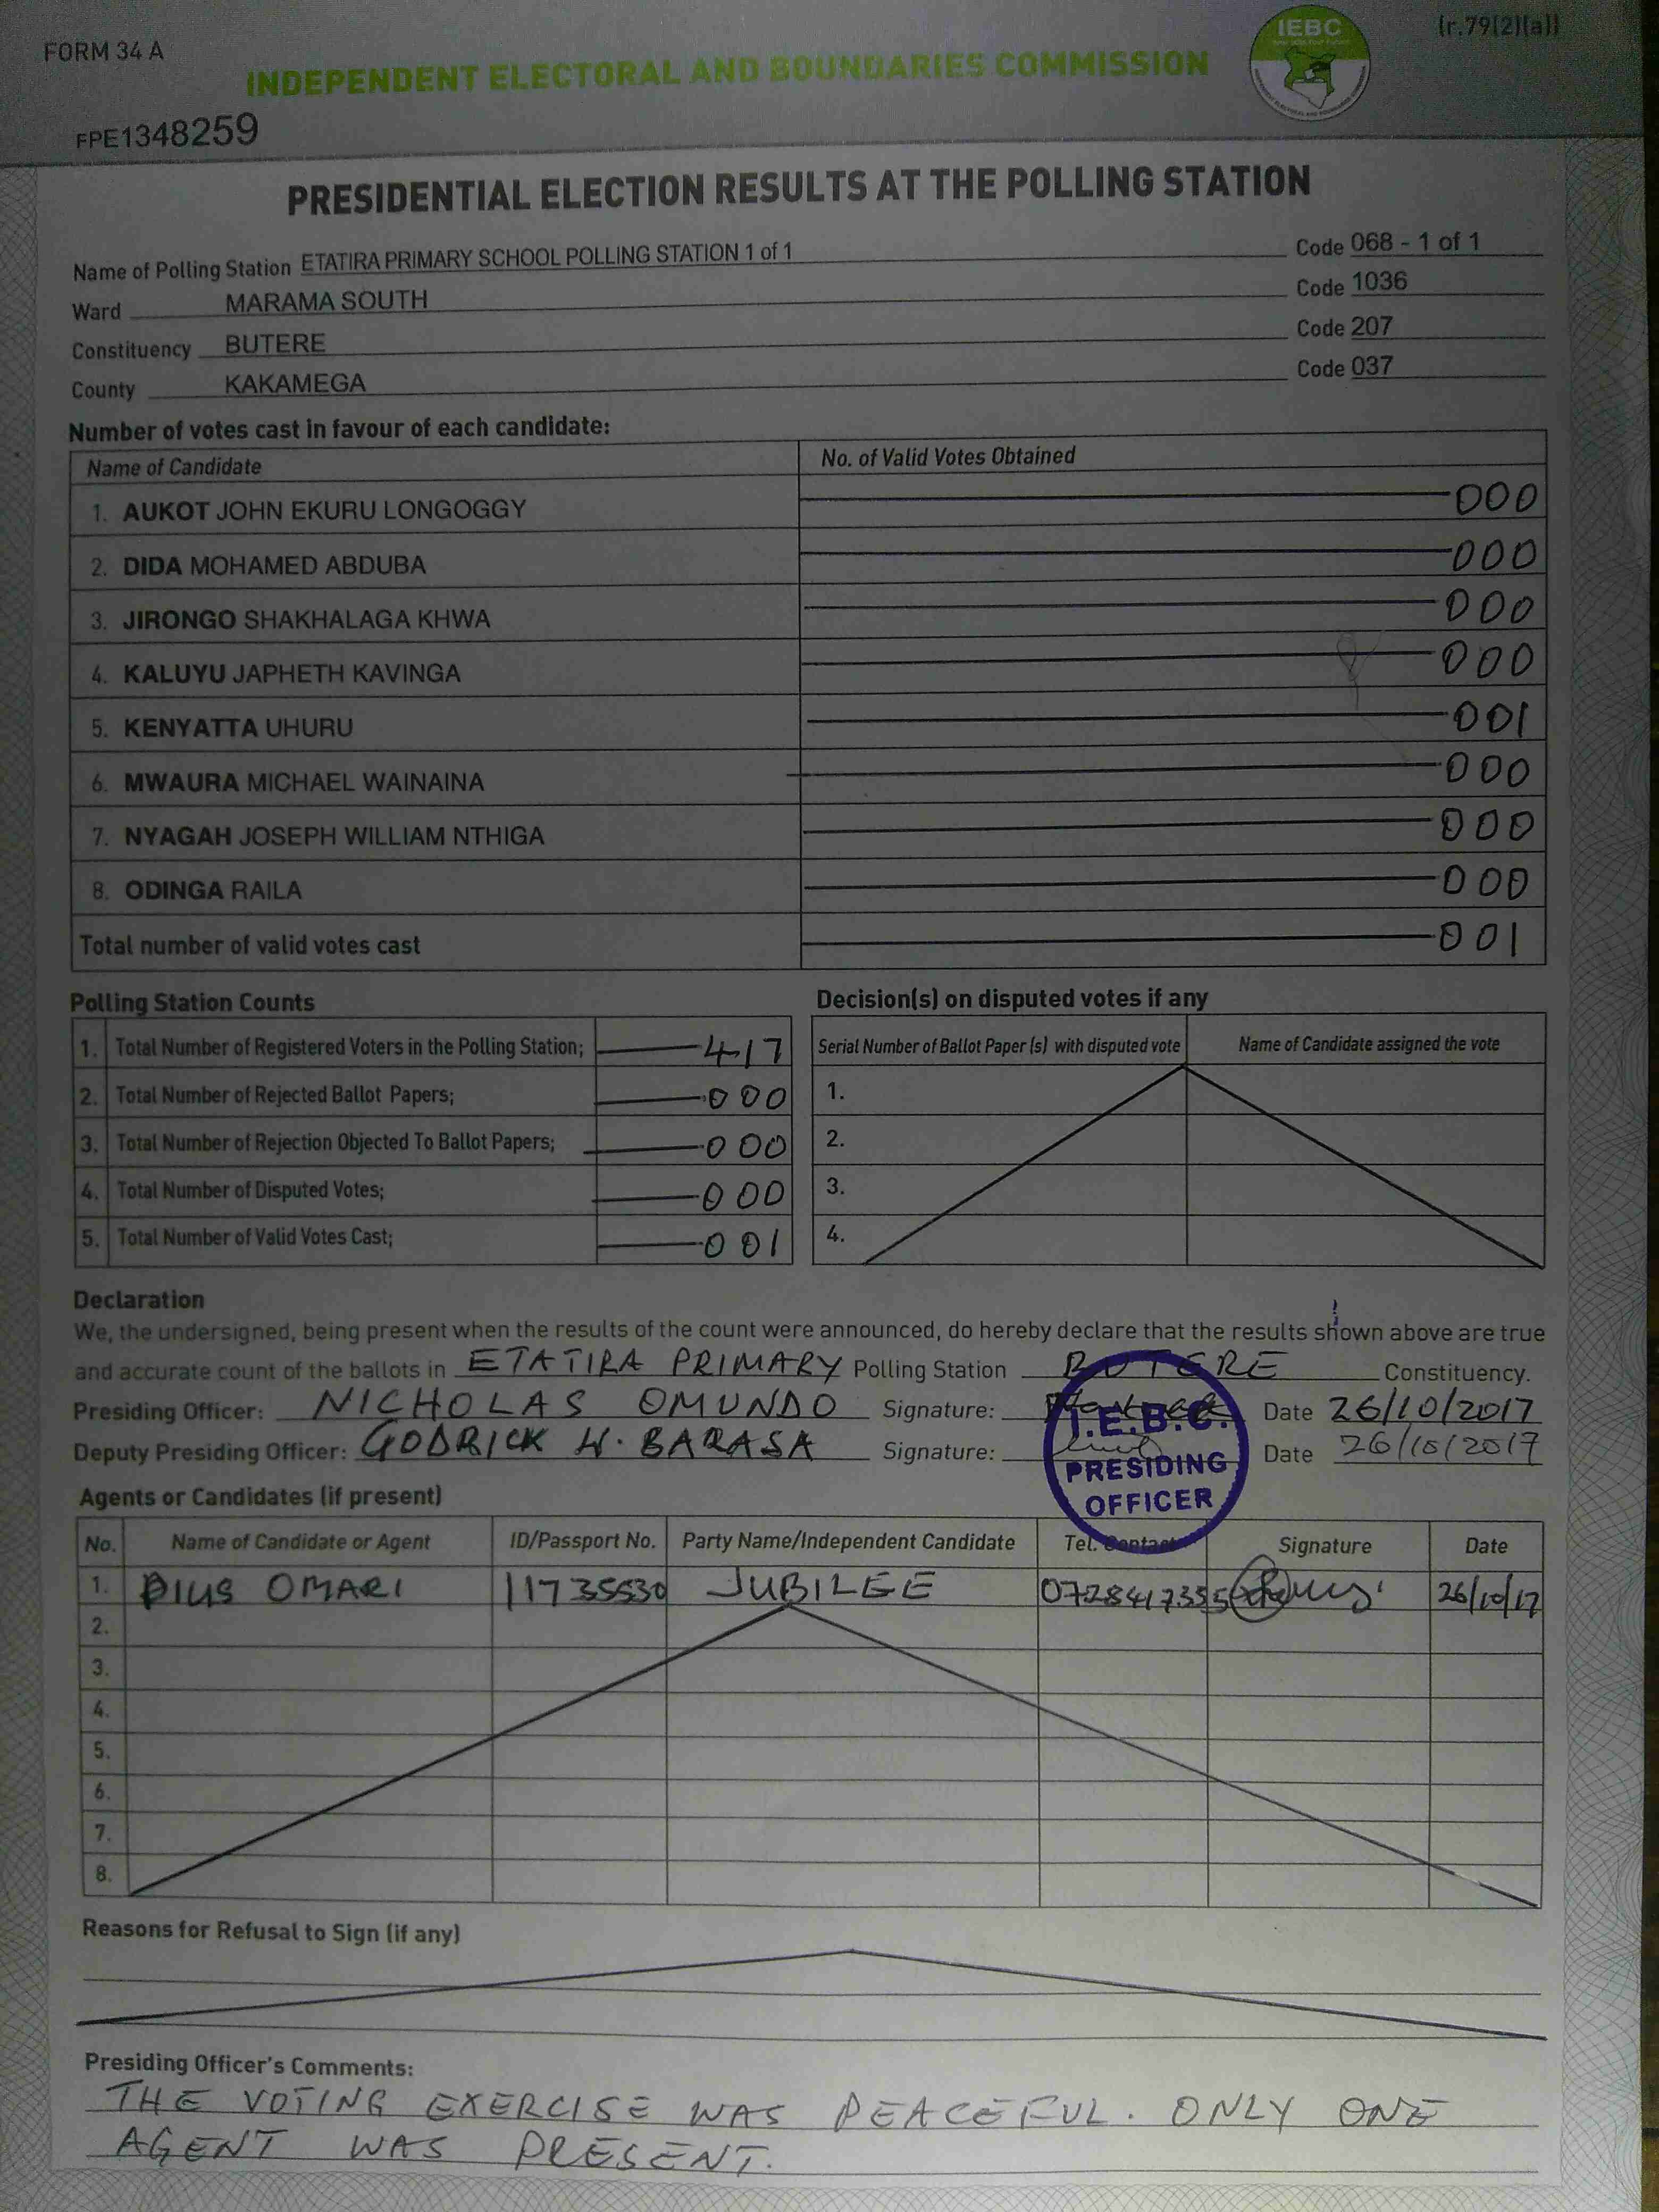 FORM 34 A
(r.79(2)(a))
IEBC
INDEPENDENT ELECTORAL AND BOUNDARIES COMMISSION
FPE1348259
PRESIDENTIAL ELECTION RESULTS AT THE POLLING STATION
Name of Polling Station ETATIRA PRIMARY SCHOOL POLLING STATION 1 of 1 Code 068 - 1 of 1
Ward MARAMA SOUTH Code 1036
Constituency BUTERE Code 207
County KAKAMEGA Code 037
Number of votes cast in favour of each candidate:
Name of Candidate No. of Valid Votes Obtained
1. AUKOT JOHN EKURU LONGOGGY 000
2. DIDA MOHAMED ABDUBA 000
3. JIRONGO SHAKHALAGA KHWA 000
4. KALUYU JAPHETH KAVINGA 000
5. KENYATTA UHURU 001
6. MWAURA MICHAEL WAINAINA 000
7. NYAGAH JOSEPH WILLIAM NTHIGA 000
8. ODINGA RAILA 000
Total number of valid votes cast 001
Polling Station Counts
1. Total Number of Registered Voters in the Polling Station; 417
2. Total Number of Rejected Ballot Papers; 000
3. Total Number of Rejection Objected To Ballot Papers; 000
4. Total Number of Disputed Votes; 000
5. Total Number of Valid Votes Cast; 001
Decision(s) on disputed votes if any
Serial Number of Ballot Paper (s) with disputed vote Name of Candidate assigned the vote
1.
2.
3.
4.
Declaration
We, the undersigned, being present when the results of the count were announced, do hereby declare that the results shown above are true
and accurate count of the ballots in ETATIRA PRIMARY Polling Station BUTERE Constituency.
Presiding Officer: NICHOLAS OMUNDO Signature: Date 26/10/2017
Deputy Presiding Officer: GODRICK W. BARASA Signature: Date 26/10/2017
I.E.B.C.
PRESIDING
OFFICER
Agents or Candidates (if present)
No. Name of Candidate or Agent ID/Passport No. Party Name/Independent Candidate Tel. Contact Signature Date
1. PIUS OMARI 11735530 JUBILEE 0728417355 26/10/17
2.
3.
4.
5.
6.
7.
8.
Reasons for Refusal to Sign (if any)
Presiding Officer's Comments:
THE VOTING EXERCISE WAS PEACEFUL. ONLY ONE
AGENT WAS PRESENT.